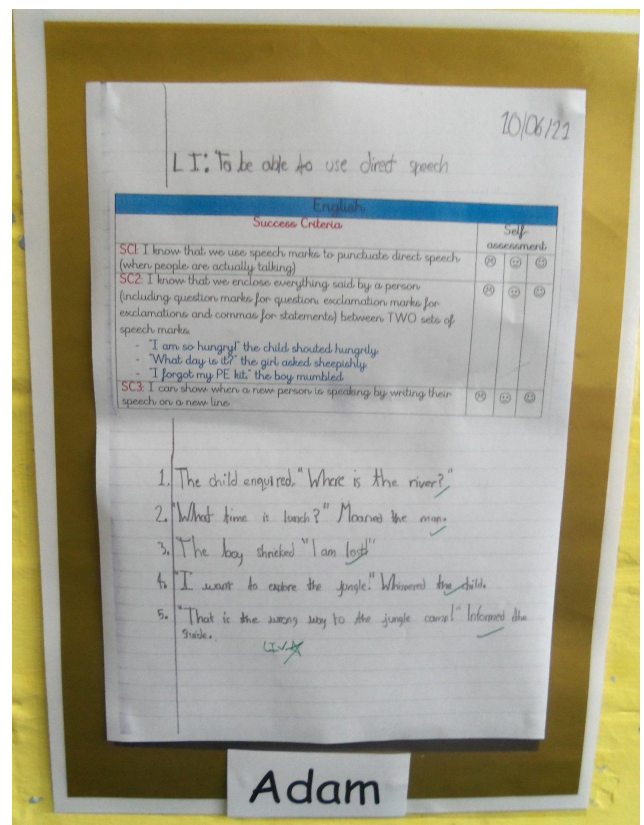 10/06/21
LI: To be able to use direct speech
English
Success Criteria
Self-
assessment
SC1: I know that we use speech marks to punctuate direct speech
(when people are actually talking)
SC2: I know that we enclose everything said by a person
(including question marks for question, exclamation marks for
exclamations and commas for statements) between TWO sets of
speech marks.
- "I am so hungry!" the child shouted hungrily.
- "What day is it?" the girl asked sheepishly.
- "I forgot my PE kit," the boy mumbled.
SC3: I can show when a new person is speaking by writing their
speech on a new line
1. The child enquired, "Where is the river?"
2. "What time is lunch?" Moaned the man.
3. The boy shrieked "I am lost!"
4. "I want to explore the jungle." Whimpered the child.
5. "That is the wrong way to the jungle camp!" Informed the
guide.
Adam